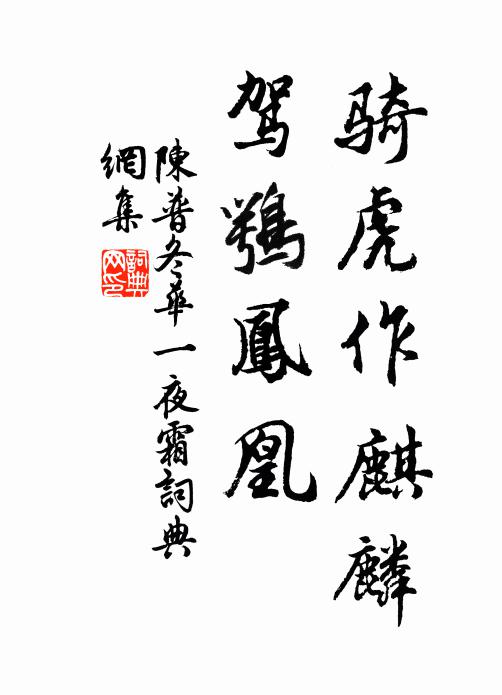 骑虎作麒麟
驾鶚鳳凰
陳普冬華一夜霜詞典
網集
詞典
网印